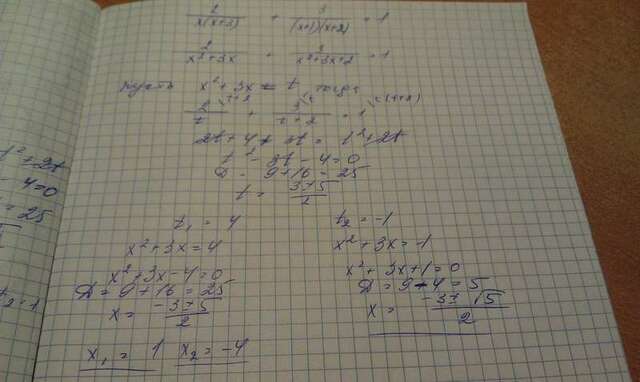 2/(x(x+3)) + 3/((x+1)(x+2)) = 1
2/(x²+3x) + 3/(x²+3x+2) = 1
пусть x²+3x = t, тогда
2/t + 3/(t+2) = 1
2t+4+3t = t²+2t
t²-3t-4=0
D = 9+16=25
t = (3±5)/2
t₁ = 4
x²+3x=4
x²+3x-4=0
D=9+16=25
x = (-3±5)/2
x₁ = 1 x₂ = -4
t₂ = -1
x²+3x=-1
x²+3x+1=0
D = 9-4 = 5
x = (-3±√5)/2
t²+2t
-4=0
=25